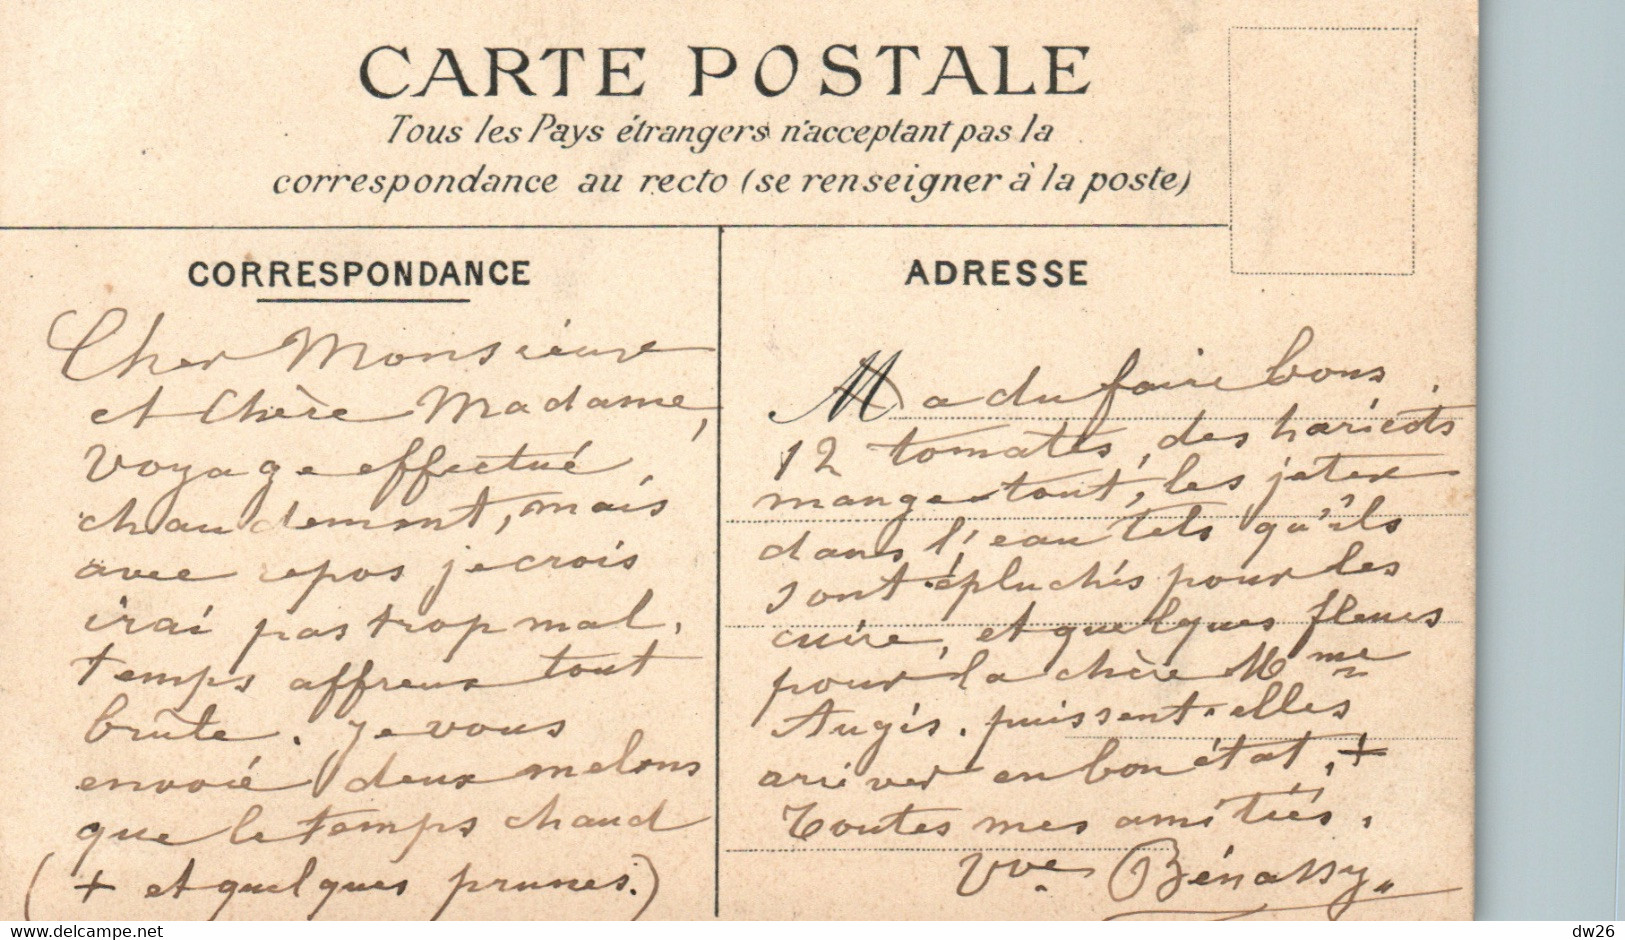 CARTE POSTALE
Tous les Pays étrangers n'acceptant pas la
correspondance au recto (se renseigner à la poste)
CORRESPONDANCE
Cher Monsieur
et Chère Madame,
Voyage effectué
chaudement, mais
avec repos je crois
irai pas trop mal.
temps affreux tout
brûle. Je vous
envoié deux melons
que le temps chaud
(+ et quelques prunes.)
ADRESSE
M a du faire bons
12 tomates, des haricots
mange-tout, les jeter
dans l'eau tels qu'ils
sont épluchés pour les
cuire, et quelques fleurs
pour la chère Mme
Augis. puissent-elles
arriver en bon état, +
Toutes mes amitiés.
Vve Bénassy
delcampe.net
dw26